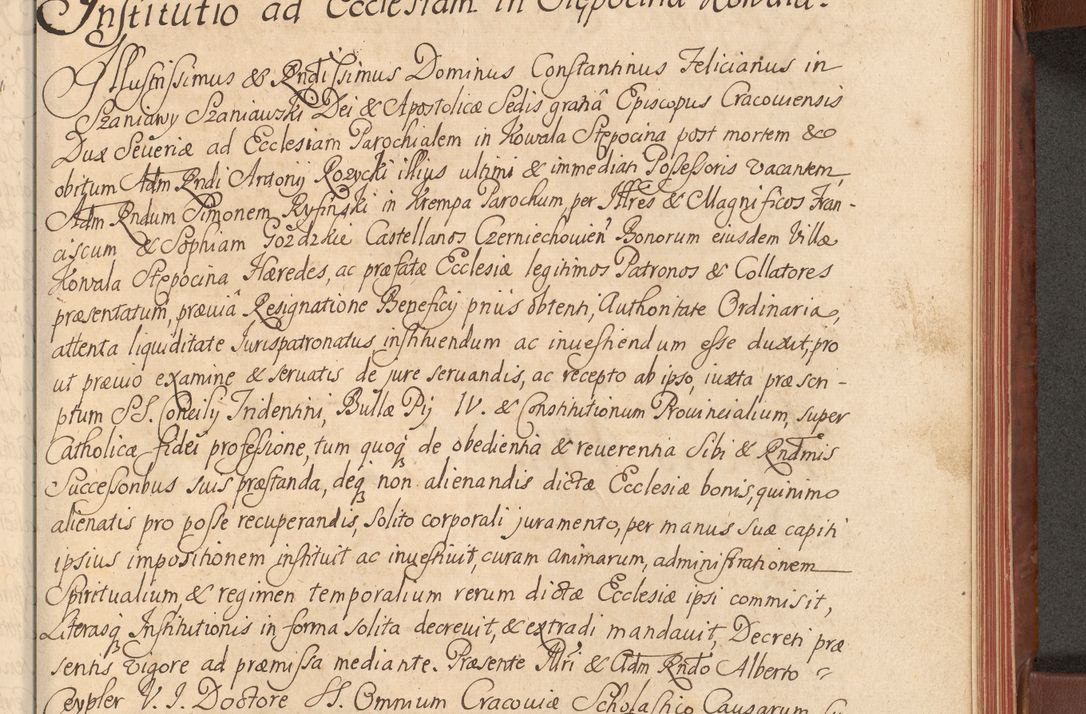 Institutio ad Ecclesiam in Stępocina Kowala.
Illustrissimus & Rndissimus Dominus Constantinus Felicianus in
Szaniawy Szaniawski Dei & Apostolicæ Sedis gratiâ Episcopus Cracoviensis
Dux Severiæ ad Ecclesiam Parochialem in Kowala Stępocina post mortem &
obitum Adm Rndi Antonij Rozycki illius ultimi & immediati Possessoris vacantem,
Adm Rndum Simonem Ryfinski in Krempa Parochum, per Illres & Magnificos Fran-
ciscum & Sophiam Gozdzkie Castellanos Czerniechovien Bonorum eiusdem Villæ
Kowala Stępocina Hæredes, ac præfatæ Ecclesiæ legitimos Patronos & Collatores
præsentatum, præviâ Resignatione Beneficij prius obtenti, Authoritate Ordinaria,
attenta liquiditate Jurispatronatus instituendum ac investiendum esse duxit, pro
ut prævio examine & servatis de jure servandis, ac recepto ab ipso, iuxta præscri-
ptum SS. Concilij Tridentini, Bullæ Pij IV. & Constitutionum Provincialium, super
Catholicæ fidei professione, tum quoq de obedientia & reverentia Sibi & Rndmis
Successoribus suis præstanda, deq non alienandis dictæ Ecclesiæ bonis, quinimo
alienatis pro posse recuperandis, solito corporali juramento, per manus suæ capiti
ipsius impositionem instituit ac investivit, curam animarum, administrationem
Spiritualium & regimen temporalium rerum dictæ Ecclesiæ ipsi commisit,
Literasq Institutionis in forma solita decrevit, & extradi mandavit, Decreti præ
sentis vigore ad præmissa mediante. Præsente Illri & Adm Rndo Alberto
Ceypler V. J. Doctore SS. Omnium Cracoviæ Scholastico Causarum